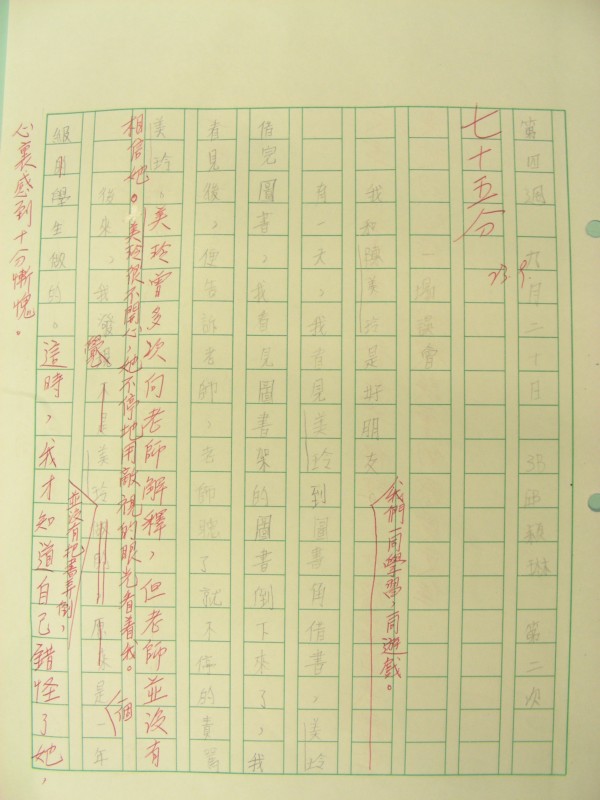 第四週 九月二十日 3B 穎琳 第二次
七十五分
一場誤會
我和陳美玲是好朋友
我們一同學習，一同遊戲。
有一天，我看見美玲到圖書角借書，美玲
借完圖書，我看見圖書架的圖書倒下來了，我
看見後，便告訴老師，老師聽了就不停的責罵
美玲，美玲曾多次向老師解釋，但老師並沒有
相信她。美玲很不開心，她不停地用敵視的眼光看着我。
後來，我發覺不是美玲 原來是一年
並沒有把書弄倒，
一個
級同學生做的。這時，我才知道自己錯怪了她，
心裏感到十分慚愧。